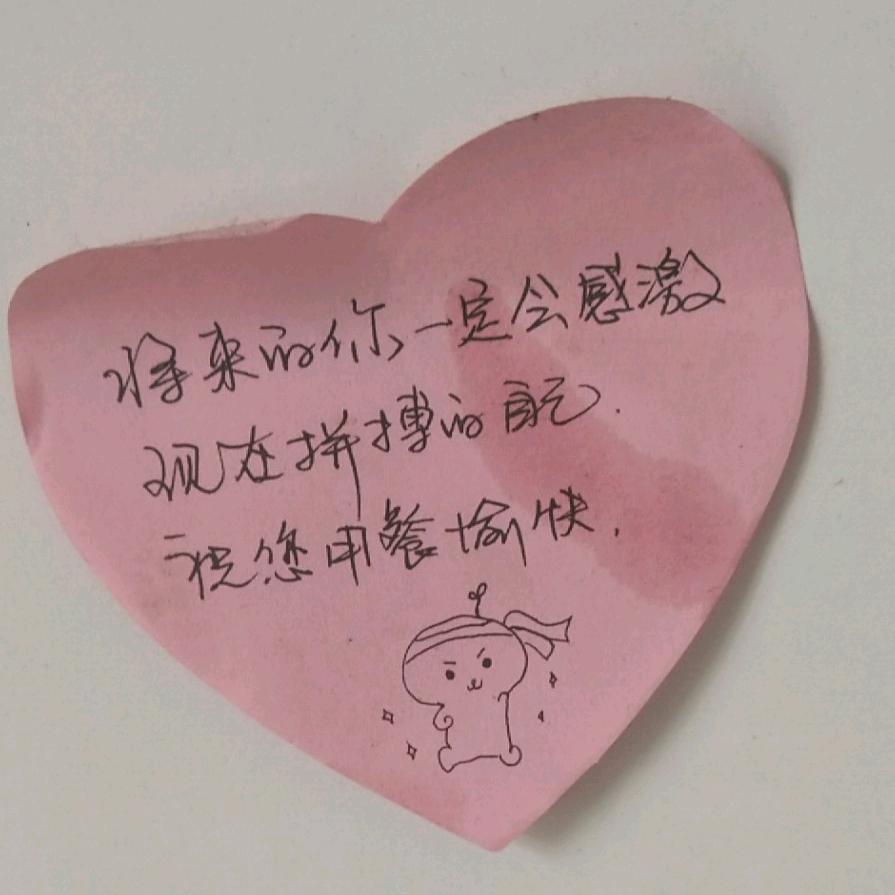 将来的你,一定会感激
现在拼搏的自己.
祝您用餐愉快.